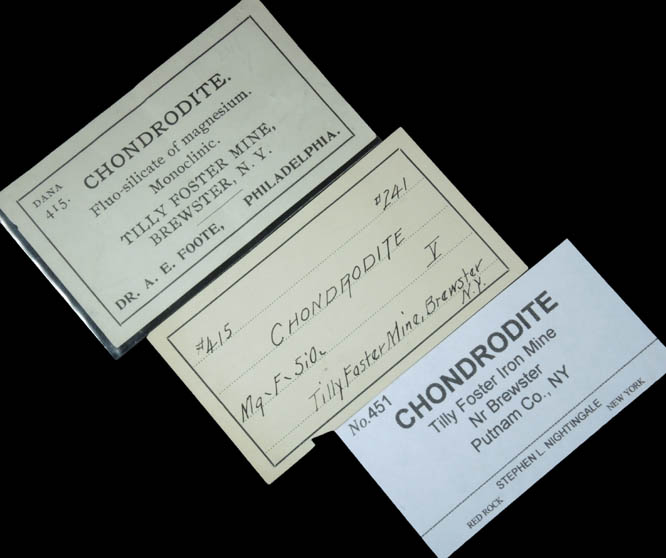 DANA
415.
CHONDRODITE.
Fluo-silicate of magnesium.
Monoclinic.
TILLY FOSTER MINE,
BREWSTER, N. Y.
DR. A. E. FOOTE, PHILADELPHIA.
#241
#415
CHONDRODITE
V
Tilly Foster Mine, Brewster
N.Y.
No. 451
CHONDRODITE
Tilly Foster Iron Mine
Nr Brewster
Putnam Co., NY
STEPHEN L. NIGHTINGALE
RED ROCK NEW YORK